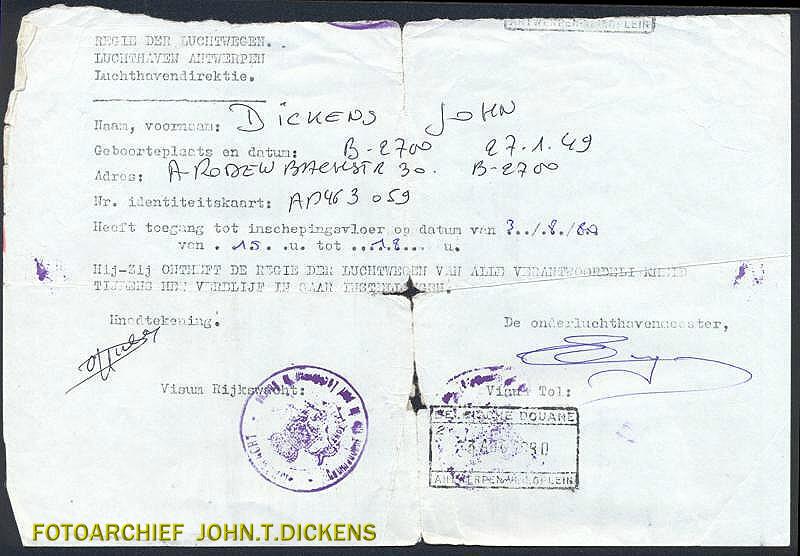 ANTWERPEN-VLIEGPLEIN
REGIE DER LUCHTWEGEN.
LUCHTHAVEN ANTWERPEN
Luchthavendirektie.
Naam, voornaam: DICKENS JOHN
Geboorteplaats en datum: B-2700 27.1.49
Adres: A-RODEN 30. B-2700
Nr. identiteitskaart: AD463059
Heeft toegang tot inschepingsvloer op datum van 3../.8./80
van . 15. .u. tot ...18... u.
Hij-Zij ONTHEFT DE REGIE DER LUCHTWEGEN VAN ALLE VERANTWOORDELIJKHEID
TIJDENS HET VERBLIJF IN HAAR INSTELLINGEN.
Handtekening: De onderluchthavenmeester,
Visum Rijkswacht: Visum Tol:
BELGISCHE DOUANE
ANTWERPEN-VLIEGPLEIN
FOTOARCHIEF JOHN.T.DICKENS